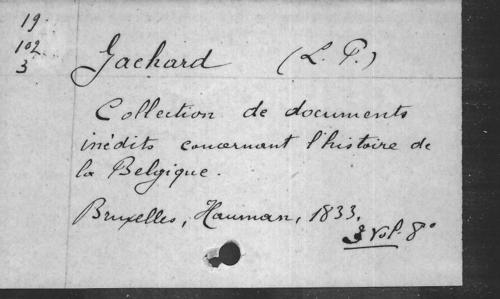 19
102
3
Gachard (L. P.)
Collection de documents
inédits concernant l'histoire de
la Belgique.
Bruxelles, Hauman, 1833.
3 vol. 8°